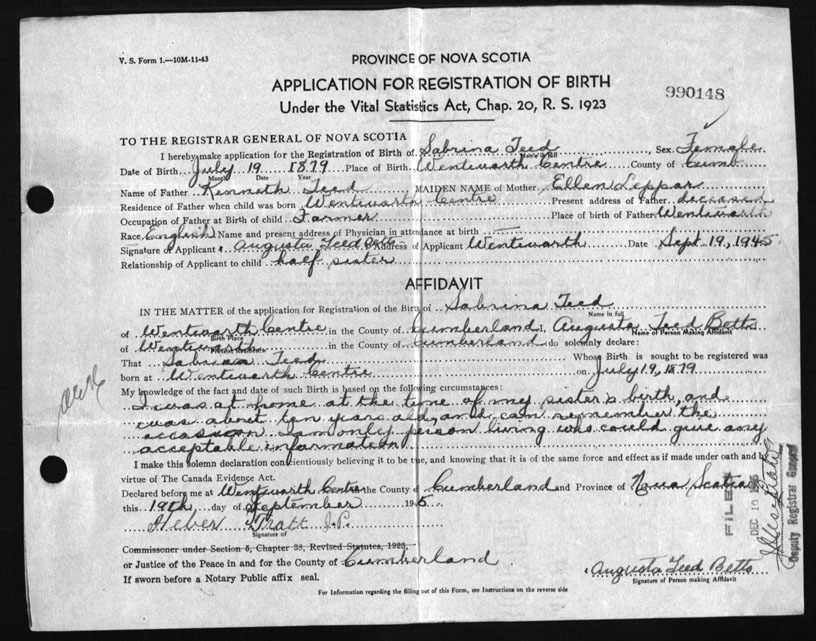 V. S. Form 1.—10M-11-43
PROVINCE OF NOVA SCOTIA
APPLICATION FOR REGISTRATION OF BIRTH
990148
Under the Vital Statistics Act, Chap. 20, R. S. 1923
TO THE REGISTRAR GENERAL OF NOVA SCOTIA
I hereby make application for the Registration of Birth of Sabrina Teed Sex Female
Name in full
Date of Birth July 19 1879 Place of Birth Wentworth Centre County of Cumb
Month Date Year
Name of Father Kenneth Teed MAIDEN NAME of Mother Ellen Leppar
Residence of Father when child was born Wentworth Centre Present address of Father deceased
Occupation of Father at Birth of child Farmer Place of birth of Father Wentworth
Race English Name and present address of Physician in attendance at birth —
Signature of Applicant Augusta Teed Betts Address of Applicant Wentworth Date Sept. 19, 1945
Relationship of Applicant to child half sister
AFFIDAVIT
IN THE MATTER of the application for Registration of the Birth of Sabrina Teed
Name in full
of Wentworth Centre in the County of Cumberland I, Augusta Teed Betts
Birth Place Name of Person Making Affidavit
of Wentworth in the County of Cumberland do solemnly declare:
Present Residence
That Sabrina Teed Whose Birth is sought to be registered was
born at Wentworth Centre on July 19, 1879
My knowledge of the fact and date of such Birth is based on the following circumstances:
I was at home at the time of my sister's birth, and
was about ten years old, and can remember the
occassion I am only person living who could give any
acceptable information
I make this solemn declaration conscientiously believing it to be true, and knowing that it is of the same force and effect as if made under oath and by
virtue of The Canada Evidence Act.
Declared before me at Wentworth Centre the County of Cumberland and Province of Nova Scotia
this 19th day of September 1945
Heber Pratt J.P.
Signature of
Commissoner under Section 5, Chapter 38, Revised Statutes, 1923,
or Justice of the Peace in and for the County of Cumberland
If sworn before a Notary Public affix seal.
Augusta Teed Betts
Signature of Person making Affidavit
For Information regarding the filling out of this Form, see Instructions on the reverse side
FILED
DEC 10 1945
Deputy Registrar General